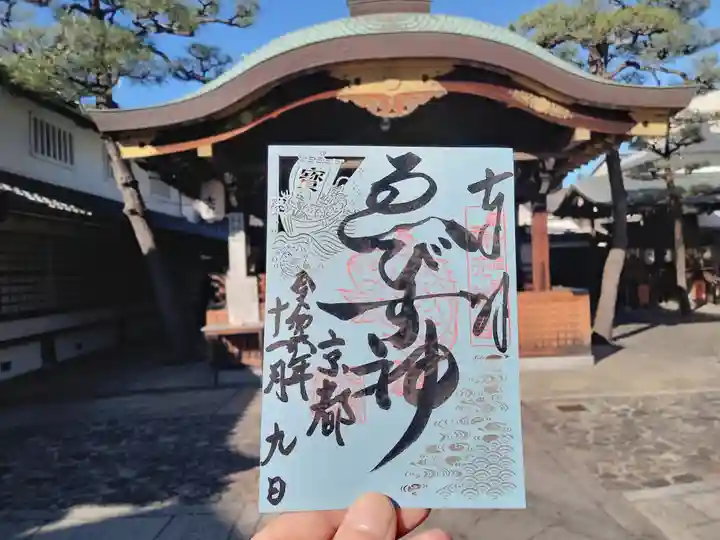 奉拝
ゑびす神
京都
令和六年
十一月九日
寳